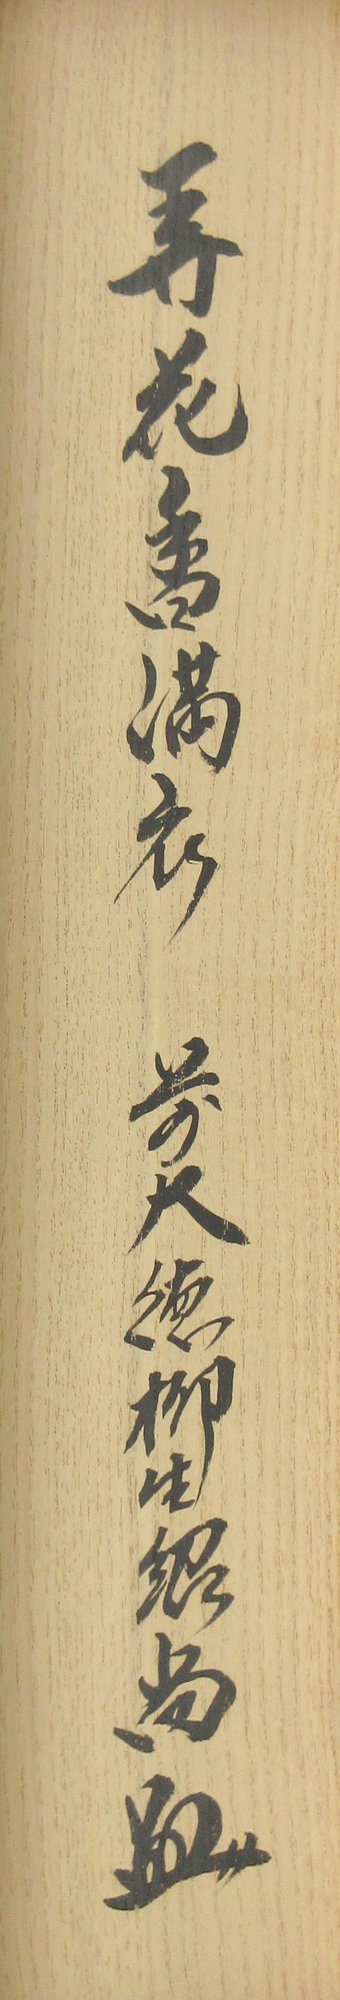 弄花香満衣 前大徳柳生紹尚